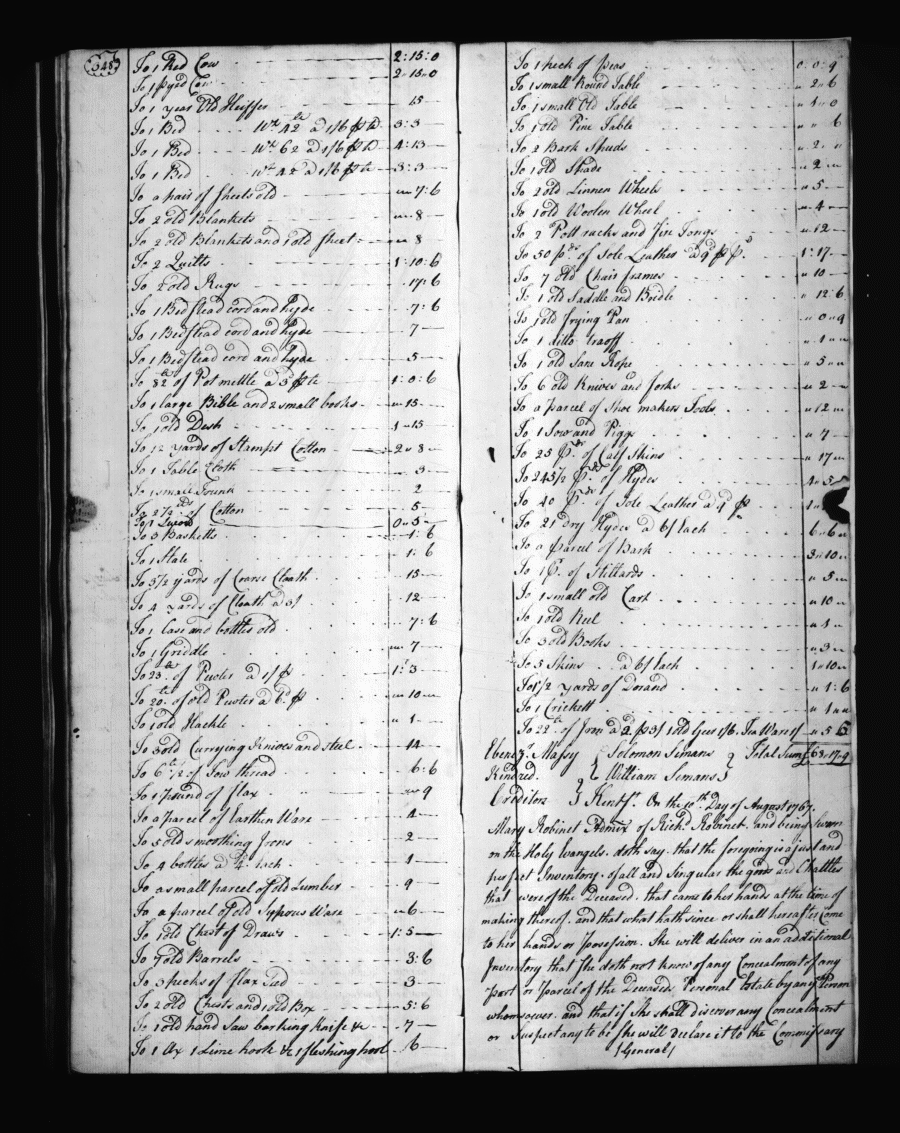 348
To 1 Red Cow 2:15:0
To 1 Pyed Cow 2:15:0
To 1 year Old Heiffer 15
To 1 Bed Wt. 42 lb a 1/6 p lb 3:3
To 1 Bed Wt. 62 a 1/6 p lb 4:13
To 1 Bed Wt. 42 a 1/6 p lb 3:3
To a pair of Sheets old 7:6
To 2 old Blankets 8
To 2 old Blankets and 1 old Sheet 8
To 2 Quilts 1:10:6
To 2 old Rugs 17:6
To 1 Bedstead cord and hyde 7:6
To 1 Bedstead cord and hyde 7
To 1 Bedstead cord and hyde 5
To 82 lb of Pot mettle a 3d p lb 1:0:6
To 1 large Bible and 2 small books 15
To 1 old Desk 1 15
To 12 yards of Stampt Cotton 2 8
To 1 Table Cloth 3
To 1 small Trunk 2
To 2 1/2 yds of Cotton 5
To 1 Sword 0 5
To 3 Basketts 1:6
To 1 Slate 1:6
To 5 1/2 yards of Coarse Cloath 15
To 4 yards of Cloath a 3/ 12
To 1 Case and bottles old 7:6
To 1 Griddle 7
To 23 lb of Pewter a 1/ p 1:3
To 20 lb of old Pewter a 6d p 10
To 1 old Hackle 1
To 3 old Currying Knives and steel 14
To 6 lb 1/2 of Sow thread 6:6
To 1 Pound of flax 9
To a parcel of Earthen Ware 4
To 5 old smoothing Irons 2
To 4 bottles a 4d. Each 1
To a small parcel of old Lumber 9
To a parcel of old Syprous Ware 6
To 1 old Chest of Draws 1:5
To 7 old Barrels 3:6
To 3 pecks of flax Sead 3
To 2 old Chests and 1 old Box 5:6
To 1 old hand Saw barking Knife &c 7
To 1 Ax 1 Lime hook &c 1 fleshing hook 6
To 1 Peck of Peas 0:0:9
To 1 small Round Table 2 6
To 1 small Old Table 1 0
To 1 old Pine Table 6
To 2 Bark Spuds 2
To 1 old Spade 2
To 2 old Linnen Wheels 5
To 1 old Woolen Wheel 4
To 2 Pott racks and Fire Tongs 12
To 50 Ps. of Sole Leather a 9d p P. 1:17
To 7 old Chair frames 10
To 1 old Saddle and Bridle 12:6
To 1 old Frying Pan 0 9
To 1 ditto 1
To 1 old Rope 5
To 6 old Knives and forks 2
To a parcel of Shoe makers Tools 12
To 1 Sow and Piggs 7
To 25 Ps. of Calf Skins 17
To 245 1/2 Ps. of Hydes 4 5
To 40 Ps. of Sole Leather a 9d p 1
To 21 dry Hydes a 6/ Each 6 6
To a parcel of Bark 3 10
To 1 P. of Stillards 5
To 1 small old Cart 10
To 1 old Reel 1
To 3 old Books 3
To 5 Skins a 6/ Each 1 10
To 1 1/2 yards of Durand 1:6
To 1 Crickett 1
To 22 lb of Iron a 2 p 3/ 1 old Gees 1/6. Tea Ware 1/ 5 6
Ebenezr. Massy Kindred.
Solomon Simans Creditors
William Semans
Total Sum £63.17.9
Kent Ss. On the 10th Day of August 1767.
Mary Robinet Admix of Richd. Robinet. and being Sworn
on the Holy Evangels. doth say. that the foregoing is a just and
perfect Inventory. of all and Singular the goods and Chattles
that were of the Deceased. that came to her hands at the time of
making thereof. and that what hath since or shall hereafter Come
to her hands or Posession. She will deliver in an additional
Inventory that She doth not know of any Concealment of any
part or Parcel of the Deceaseds Personal Estate by any Person
whomsoever. and that if She shall discover any Concealment
or Suspect any to be She will Declare it to the Commissary
/General/